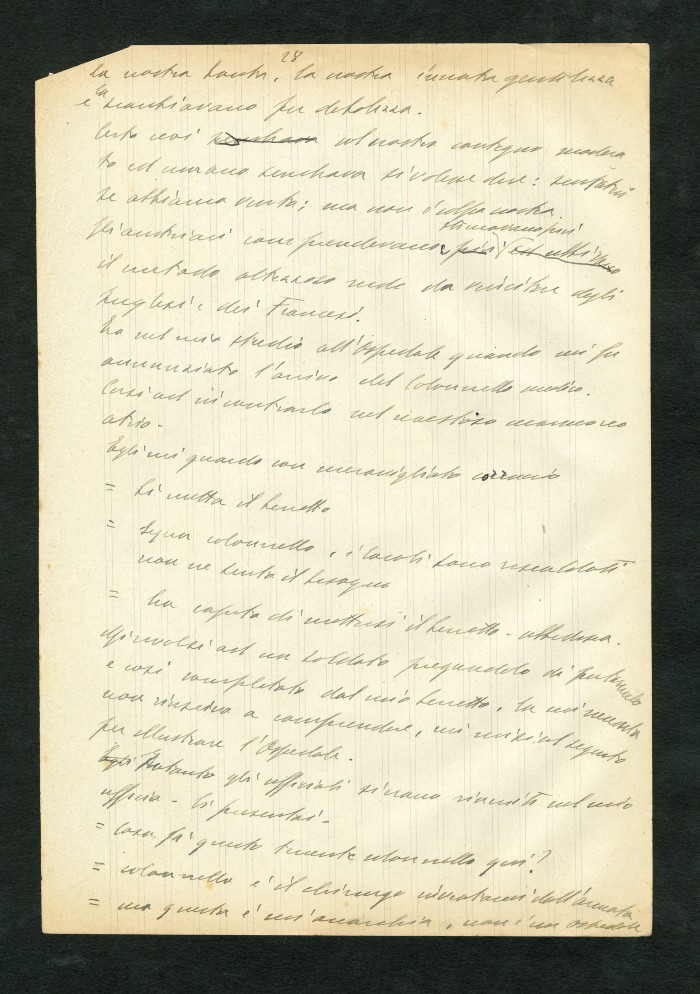 28
la nostra bontà, la nostra innata gentilezza
e la scambiavano per debolezza.
Certo così col nostro contegno modera
to ed umano sembrava si volesse dire: scusateci
se abbiamo vinto; ma non è colpa nostra.
stimavano più
Gli austriaci comprendevano e più
il metodo altezzoso rude da vincitore degli
Inglesi e dei Francesi.
Ero nel mio studio all'Ospedale quando mi fu
annunziato l'arrivo del Colonnello medico.
Corsi ad incontrarlo nel maestoso marmoreo
atrio.
Egli mi guardò con meravigliato
= Si metta il berretto
= Signor colonnello, i locali sono riscaldati
non ne sento il bisogno
= ha capito di mettersi il berretto - ubbidisca.
Mi rivolsi ad un soldato pregandolo di portarmelo
e così completato dal mio berretto, la mi
non riuscivo a comprendere, mi misi al seguito
per illustrare l'Ospedale.
Egli Intanto gli ufficiali si erano riuniti nel mio
ufficio - li presentai -
= Cosa fa questo tenente colonnello qui?
= colonnello è il chirurgo dell'armata
= ma questa è un'anarchia, non è un ospedale